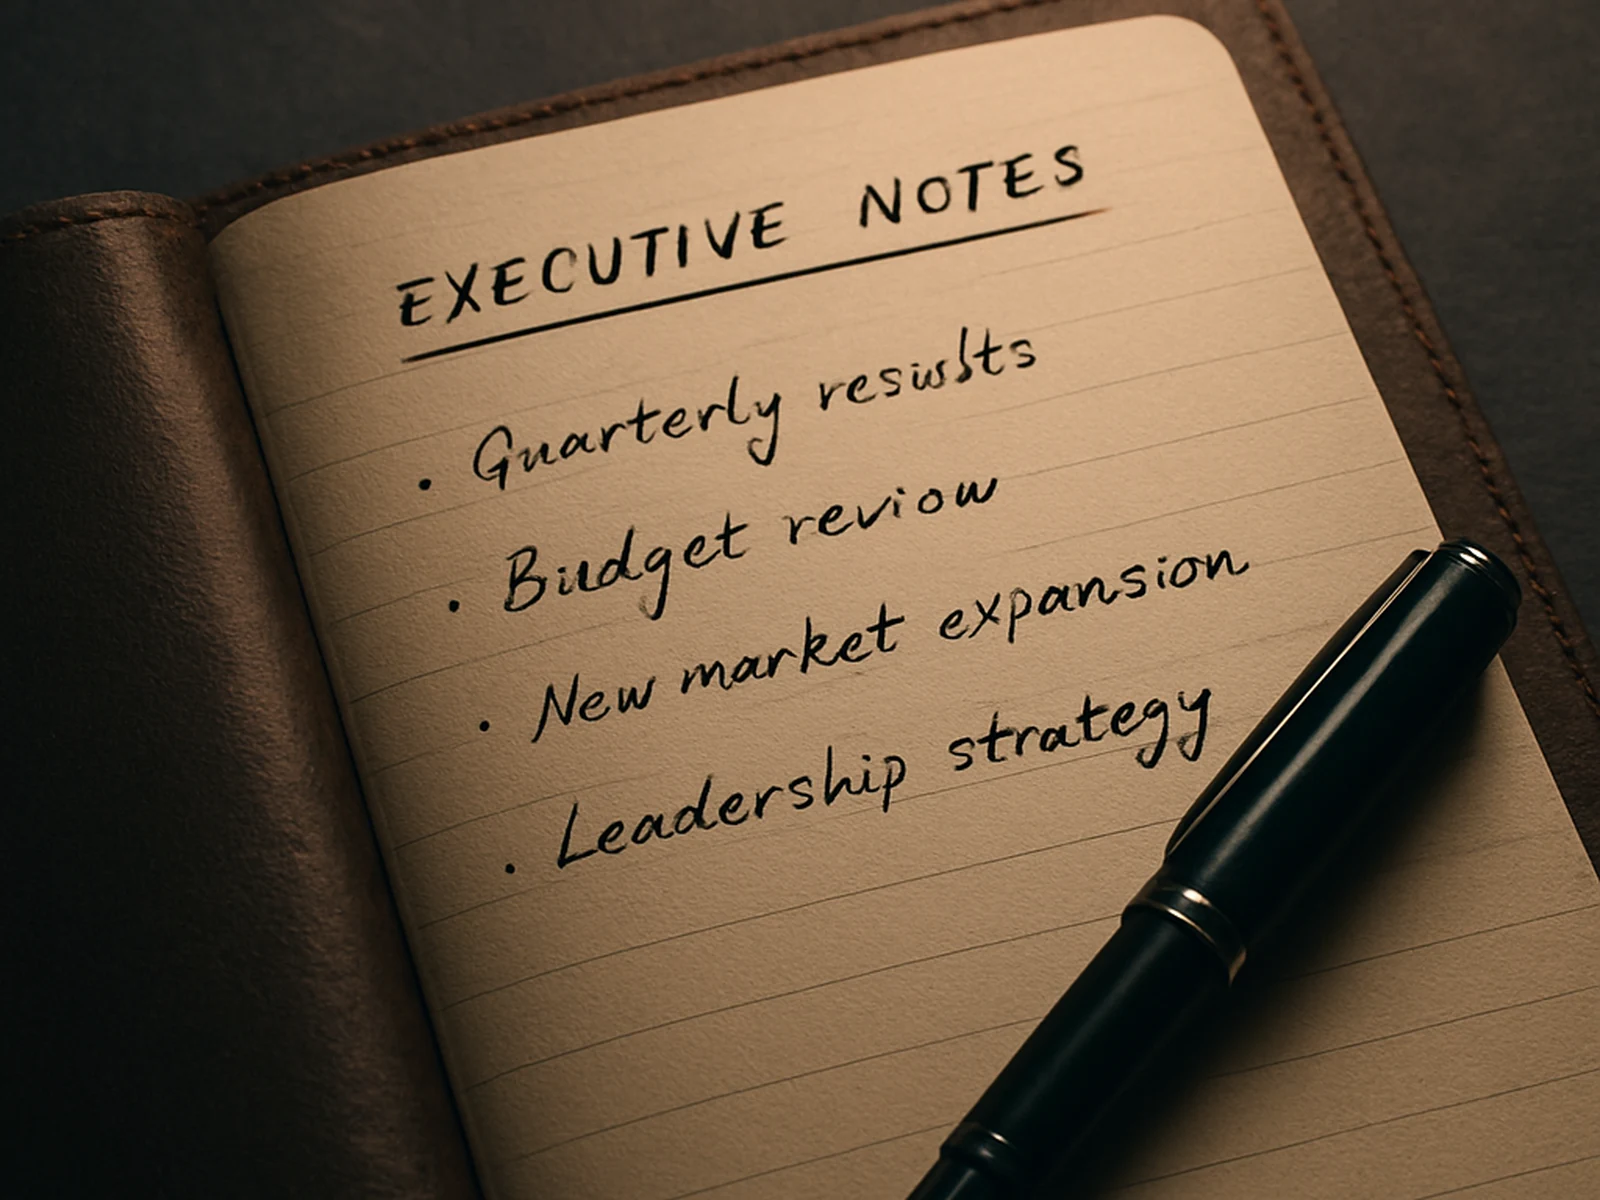 EXECUTIVE NOTES
• Quarterly resuslts
• Budget reviow
• New market expansion
• Leadership strategy